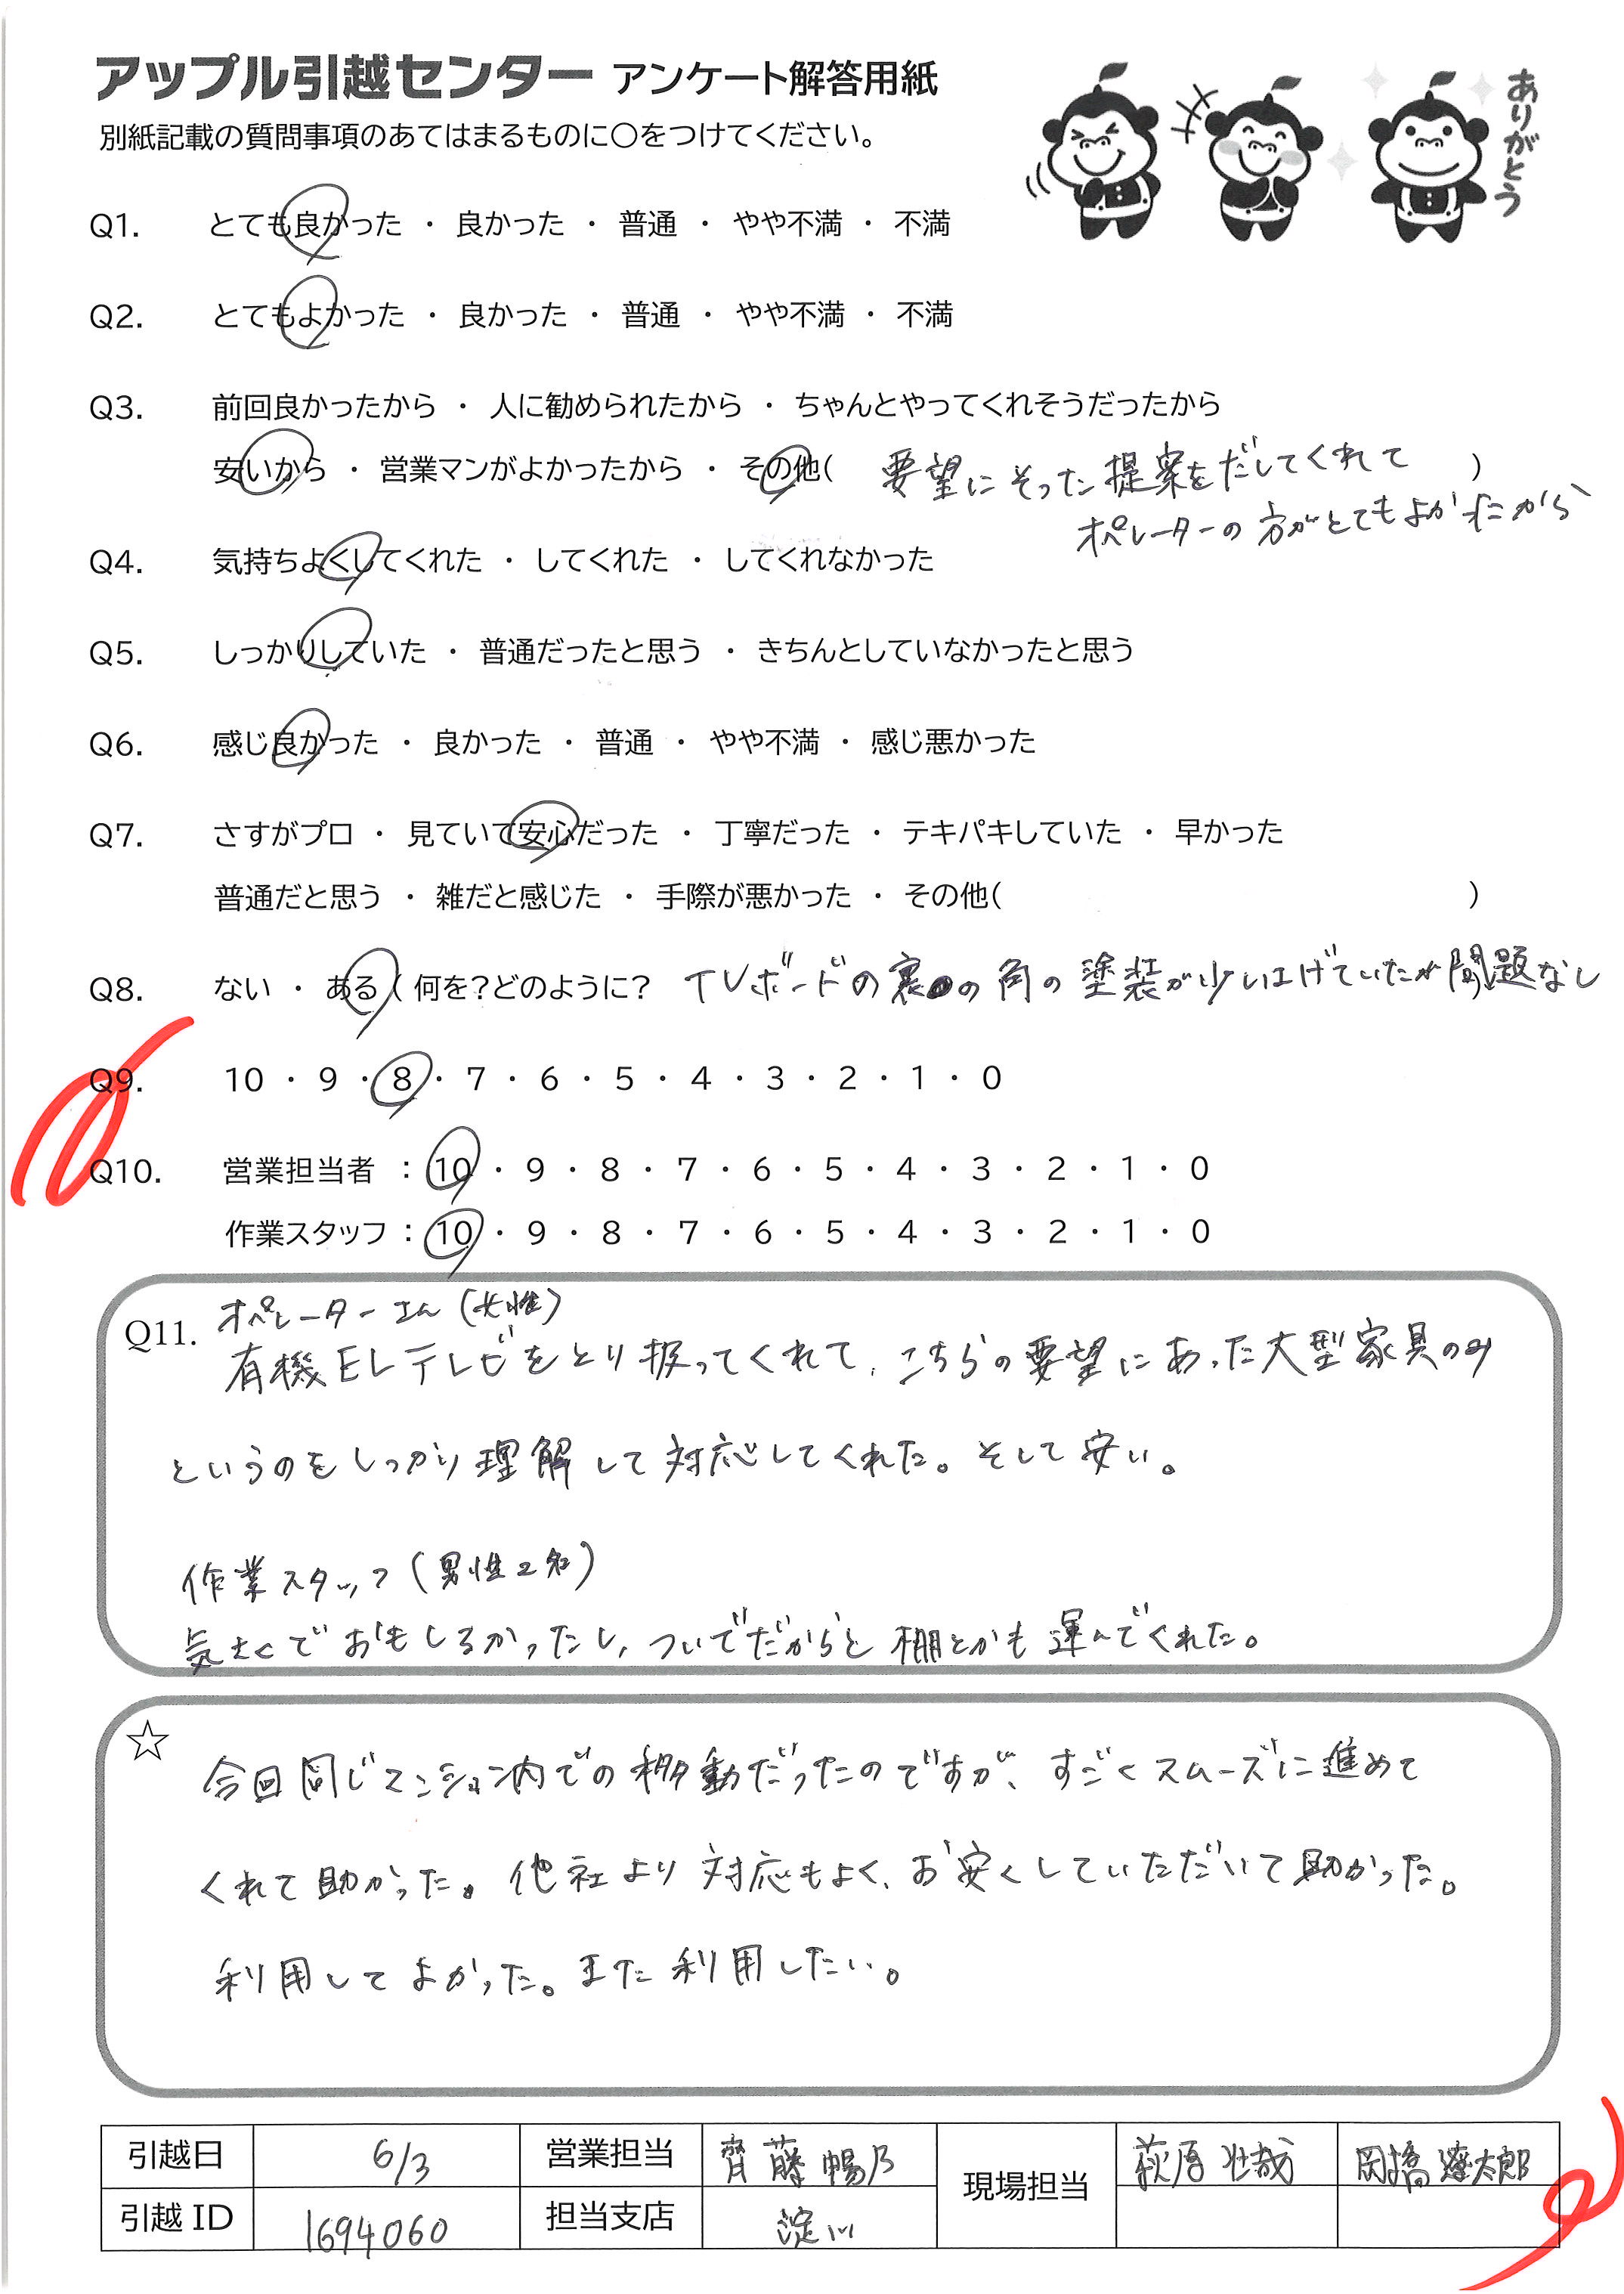 アップル引越センター アンケート解答用紙
別紙記載の質問事項のあてはまるものに〇をつけてください。
ありがとう
Q1. とても良かった ・ 良かった ・ 普通 ・ やや不満 ・ 不満
Q2. とてもよかった ・ 良かった ・ 普通 ・ やや不満 ・ 不満
Q3. 前回良かったから ・ 人に勧められたから ・ ちゃんとやってくれそうだったから
安いから ・ 営業マンがよかったから ・ その他( 要望にそった提案をだしてくれて )
オペレーターの方がとてもよかったから
Q4. 気持ちよくしてくれた ・ してくれた ・ してくれなかった
Q5. しっかりしていた ・ 普通だったと思う ・ きちんとしていなかったと思う
Q6. 感じ良かった ・ 良かった ・ 普通 ・ やや不満 ・ 感じ悪かった
Q7. さすがプロ ・ 見ていて安心だった ・ 丁寧だった ・ テキパキしていた ・ 早かった
普通だと思う ・ 雑だと感じた ・ 手際が悪かった ・ その他( )
Q8. ない ・ ある ( 何を?どのように? TVボードの裏の角の塗装が少しはげていたが問題なし
Q9. 10 ・ 9 ・ 8 ・ 7 ・ 6 ・ 5 ・ 4 ・ 3 ・ 2 ・ 1 ・ 0
Q10. 営業担当者 : 10 ・ 9 ・ 8 ・ 7 ・ 6 ・ 5 ・ 4 ・ 3 ・ 2 ・ 1 ・ 0
作業スタッフ : 10 ・ 9 ・ 8 ・ 7 ・ 6 ・ 5 ・ 4 ・ 3 ・ 2 ・ 1 ・ 0
Q11. オペレーターさん(女性)
有機ELテレビをとり扱ってくれて、こちらの要望にあった大型家具のみ
というのをしっかり理解して対応してくれた。そして安い。
作業スタッフ(男性2名)
気さくでおもしろかったし、ついでだからと棚とかも運んでくれた。
☆
今回同じマンション内での移動だったのですが、すごくスムーズに進めて
くれて助かった。他社より対応もよく、お安くしていただいて助かった。
利用してよかった。また利用したい。
引越日 6/3 営業担当 齊藤暢乃 現場担当 萩原壮哉 岡橋遼太郎
引越ID 1694060 担当支店 淀川